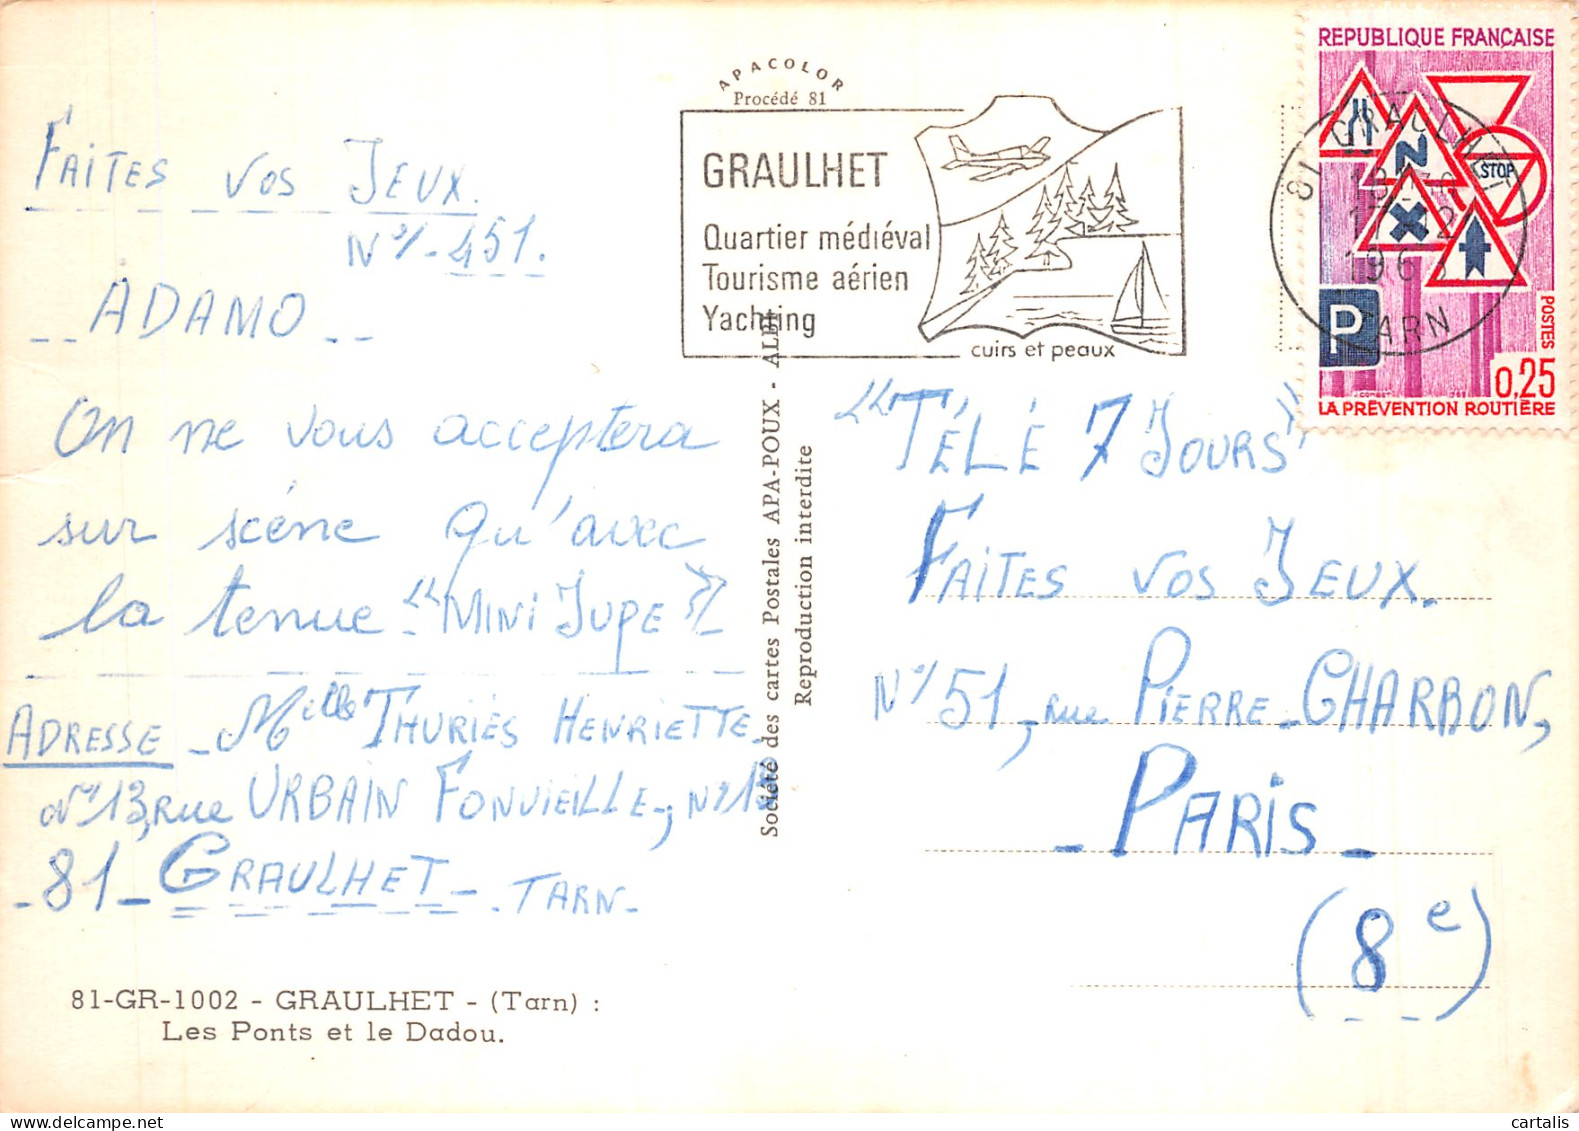 APACOLOR
Procédé 81
FAITES VOS JEUX.
N°/- 451.
-- ADAMO --
On ne vous acceptera
sur scéne qu'avec
la tenue "MINI JUPE"
ADRESSE - Melle THURIÈS HENRIETTE -
N° 13, rue URBAIN FONVIEILLE -, N° 13
- 81 - GRAULHET - - TARN -
81-GR-1002 - GRAULHET - (Tarn) :
Les Ponts et le Dadou.
GRAULHET
Quartier médiéval
Tourisme aérien
Yachting
cuirs et peaux
Société des cartes Postales APA-POUX - ALBI
Reproduction interdite
REPUBLIQUE FRANÇAISE
STOP
P
POSTES
0,25
LA PRÉVENTION ROUTIÈRE
81 GRAULHET
17
196
TARN
"TÉLÉ 7 JOURS"
FAITES VOS JEUX.
N°/ 51, rue PIERRE - CHARRON,
- PARIS -
(8e)
cartalis